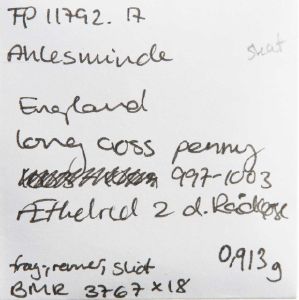 FP 11792.17
Ahlesminde
skat
England
long coss penny
997-1003
Æthelred 2 d. Rådløse
frag, renset, slidt
0,913g
BMR 3767x18